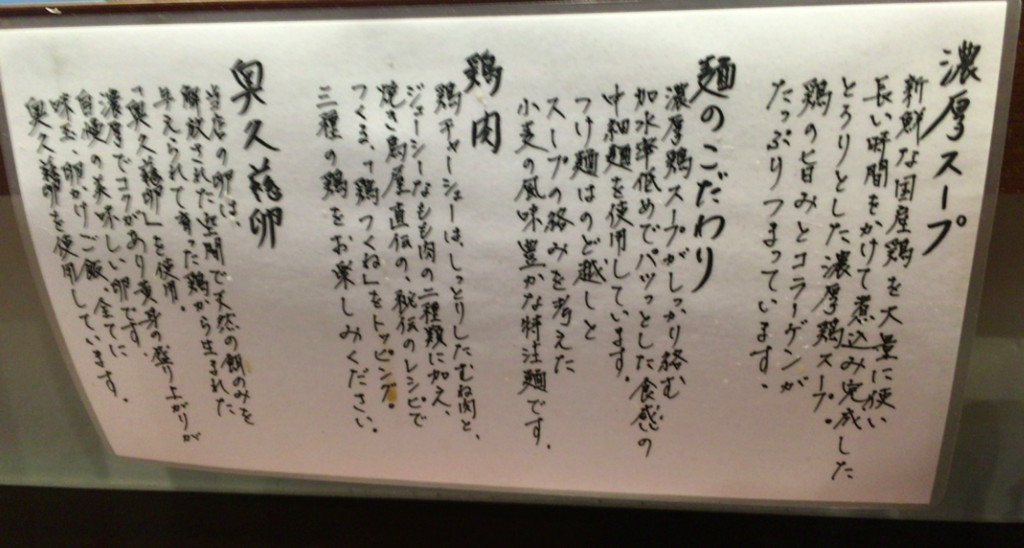 濃厚スープ
新鮮な国産鶏を大量に使い
長い時間をかけて煮込み完成した
とろりとした濃厚鶏スープ。
鶏の旨みとコラーゲンが
たっぷりつまっています。
麺のこだわり
濃厚鶏スープがしっかり絡む
加水率低めでパツっとした食感の
中細麺を使用しています。
つけ麺はのど越しと
スープの絡みを考えた
小麦の風味豊かな特注麺です。
鶏肉
鶏チャーシューは、しっとりしたむね肉と、
ジューシーなもも肉の二種類に加え、
焼き鳥屋直伝の、秘伝のレシピで
つくる、「鶏つくね」をトッピング。
三種の鶏をお楽しみください。
奥久慈卵
当店の卵は、
解放された空間で天然の餌のみを
与えられて育った鶏から生まれた
「奥久慈卵」を使用。
濃厚でコクがあり黄身の盛り上がりが
自慢の美味しい卵です。
味玉、卵かけご飯、全てに
奥久慈卵を使用しています。